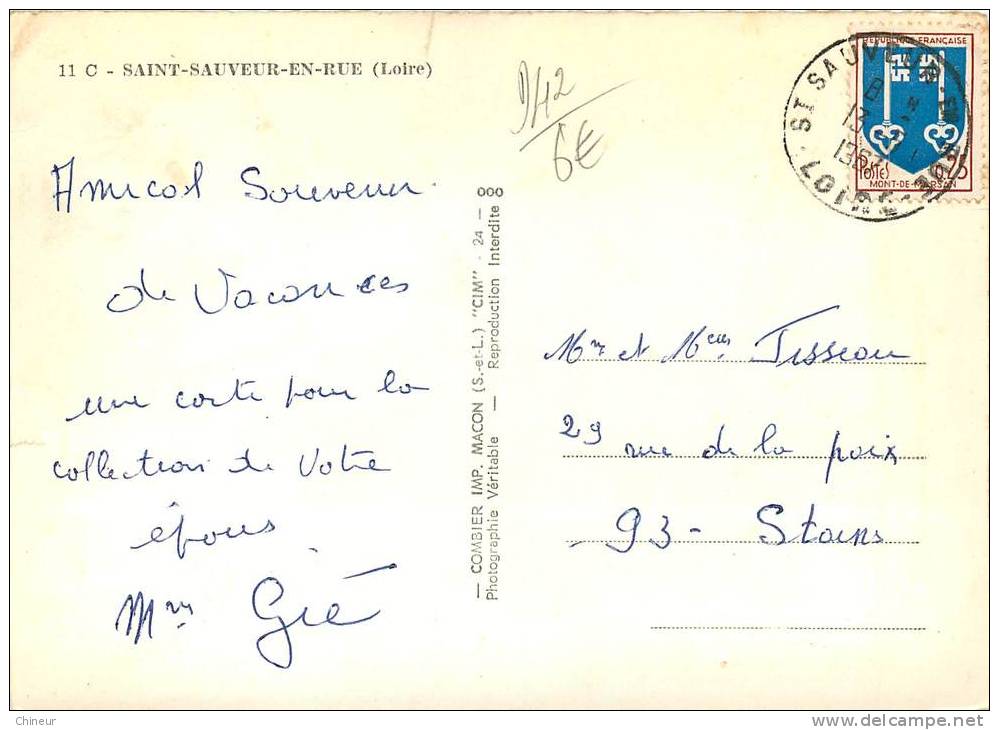 11 C - SAINT-SAUVEUR-EN-RUE (Loire)
Amical Souvenir
de Vacances
une carte pour la
collection de Votre
époux
Mme Gié
000
— COMBIER IMP. MACON (S.-et-L.) "CIM" - 24 —
Photographie Véritable — Reproduction Interdite
6€
REPUBLIQUE FRANÇAISE
POSTES
0,25
MONT-DE-MARSAN
ST SAUVEUR-EN-RUE
LOIRE
Mr et Mme Tisseau
29 rue de la paix
93 - Stains
Chineur
delcampe.net